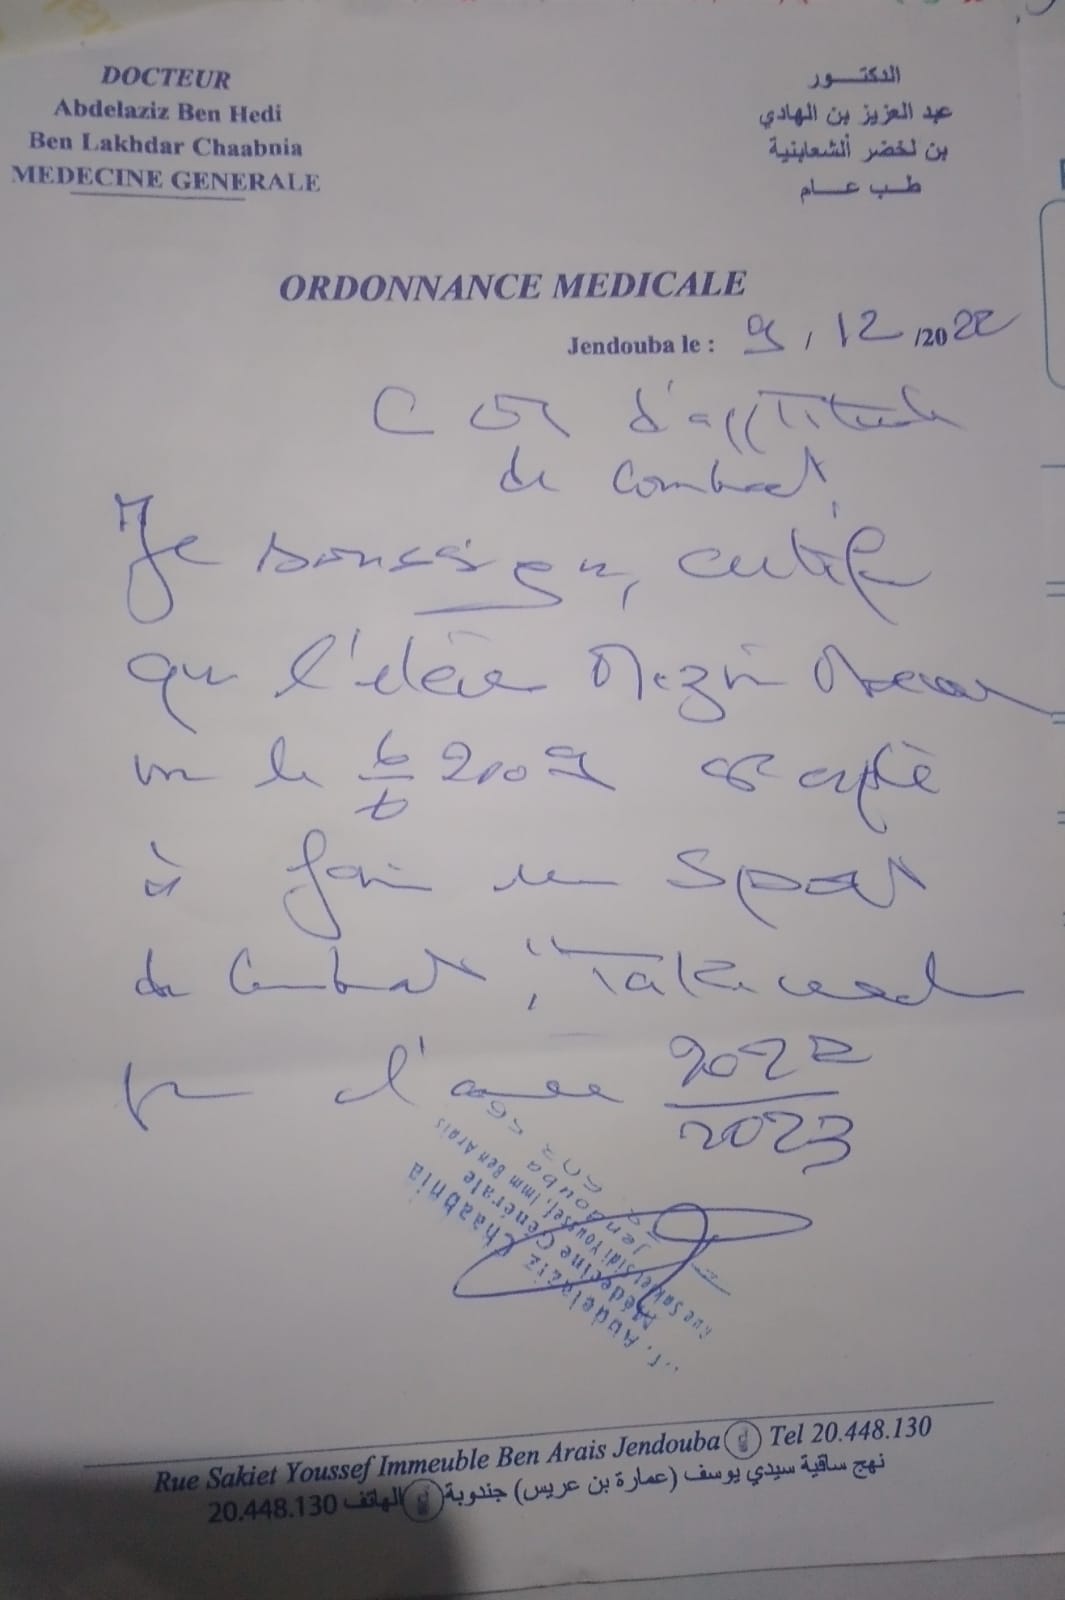 DOCTEUR
Abdelaziz Ben Hedi
Ben Lakhdar Chaabnia
MEDECINE GENERALE
الدكتـــور
عبد العزيز بن الهادي
بن لخضر ألشعابنية
طـب عـــام
ORDONNANCE MEDICALE
Jendouba le : 9 / 12 /2022
d'apptitude
de combat
Je soussigné, certifie
que l'élève
le 6/6 2009 est apte
à faire un sport
de combat, "Takwend
pr l'année 2022/2023
Abdelaziz Chaabnia
Médecine Générale
Rue Sakiet Sidi Youssef, Imm Ben Arais
Jendouba
Rue Sakiet Youssef Immeuble Ben Arais Jendouba Tel 20.448.130
نهج ساقية سيدي يوسف (عمارة بن عريس) جندوبة الهاتف 20.448.130